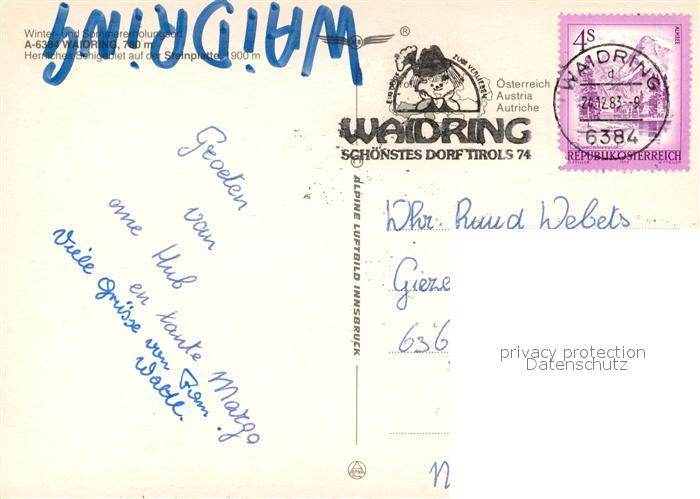 WAIDRING
Winter- und Sommererholungsort
A-6384 WAIDRING, 780 m
Herrliches Schigebiet auf der Steinplatte, 1900 m
®
Österreich
Austria
Autriche
EIN DORF ZUM VERLIEBEN
WAIDRING
SCHÖNSTES DORF TIROLS 74
4 S
ALMSEE
WAIDRING
d
24.12.83 -9
6384
REPUBLIK ÖSTERREICH
Groeten
van
ome Hub
en tante Margo
Viele Grüsse von Fam.
ALPINE LUFTBILD INNSBRUCK
Dhr. Ruud Webets
Gieze
636
N
privacy protection
Datenschutz